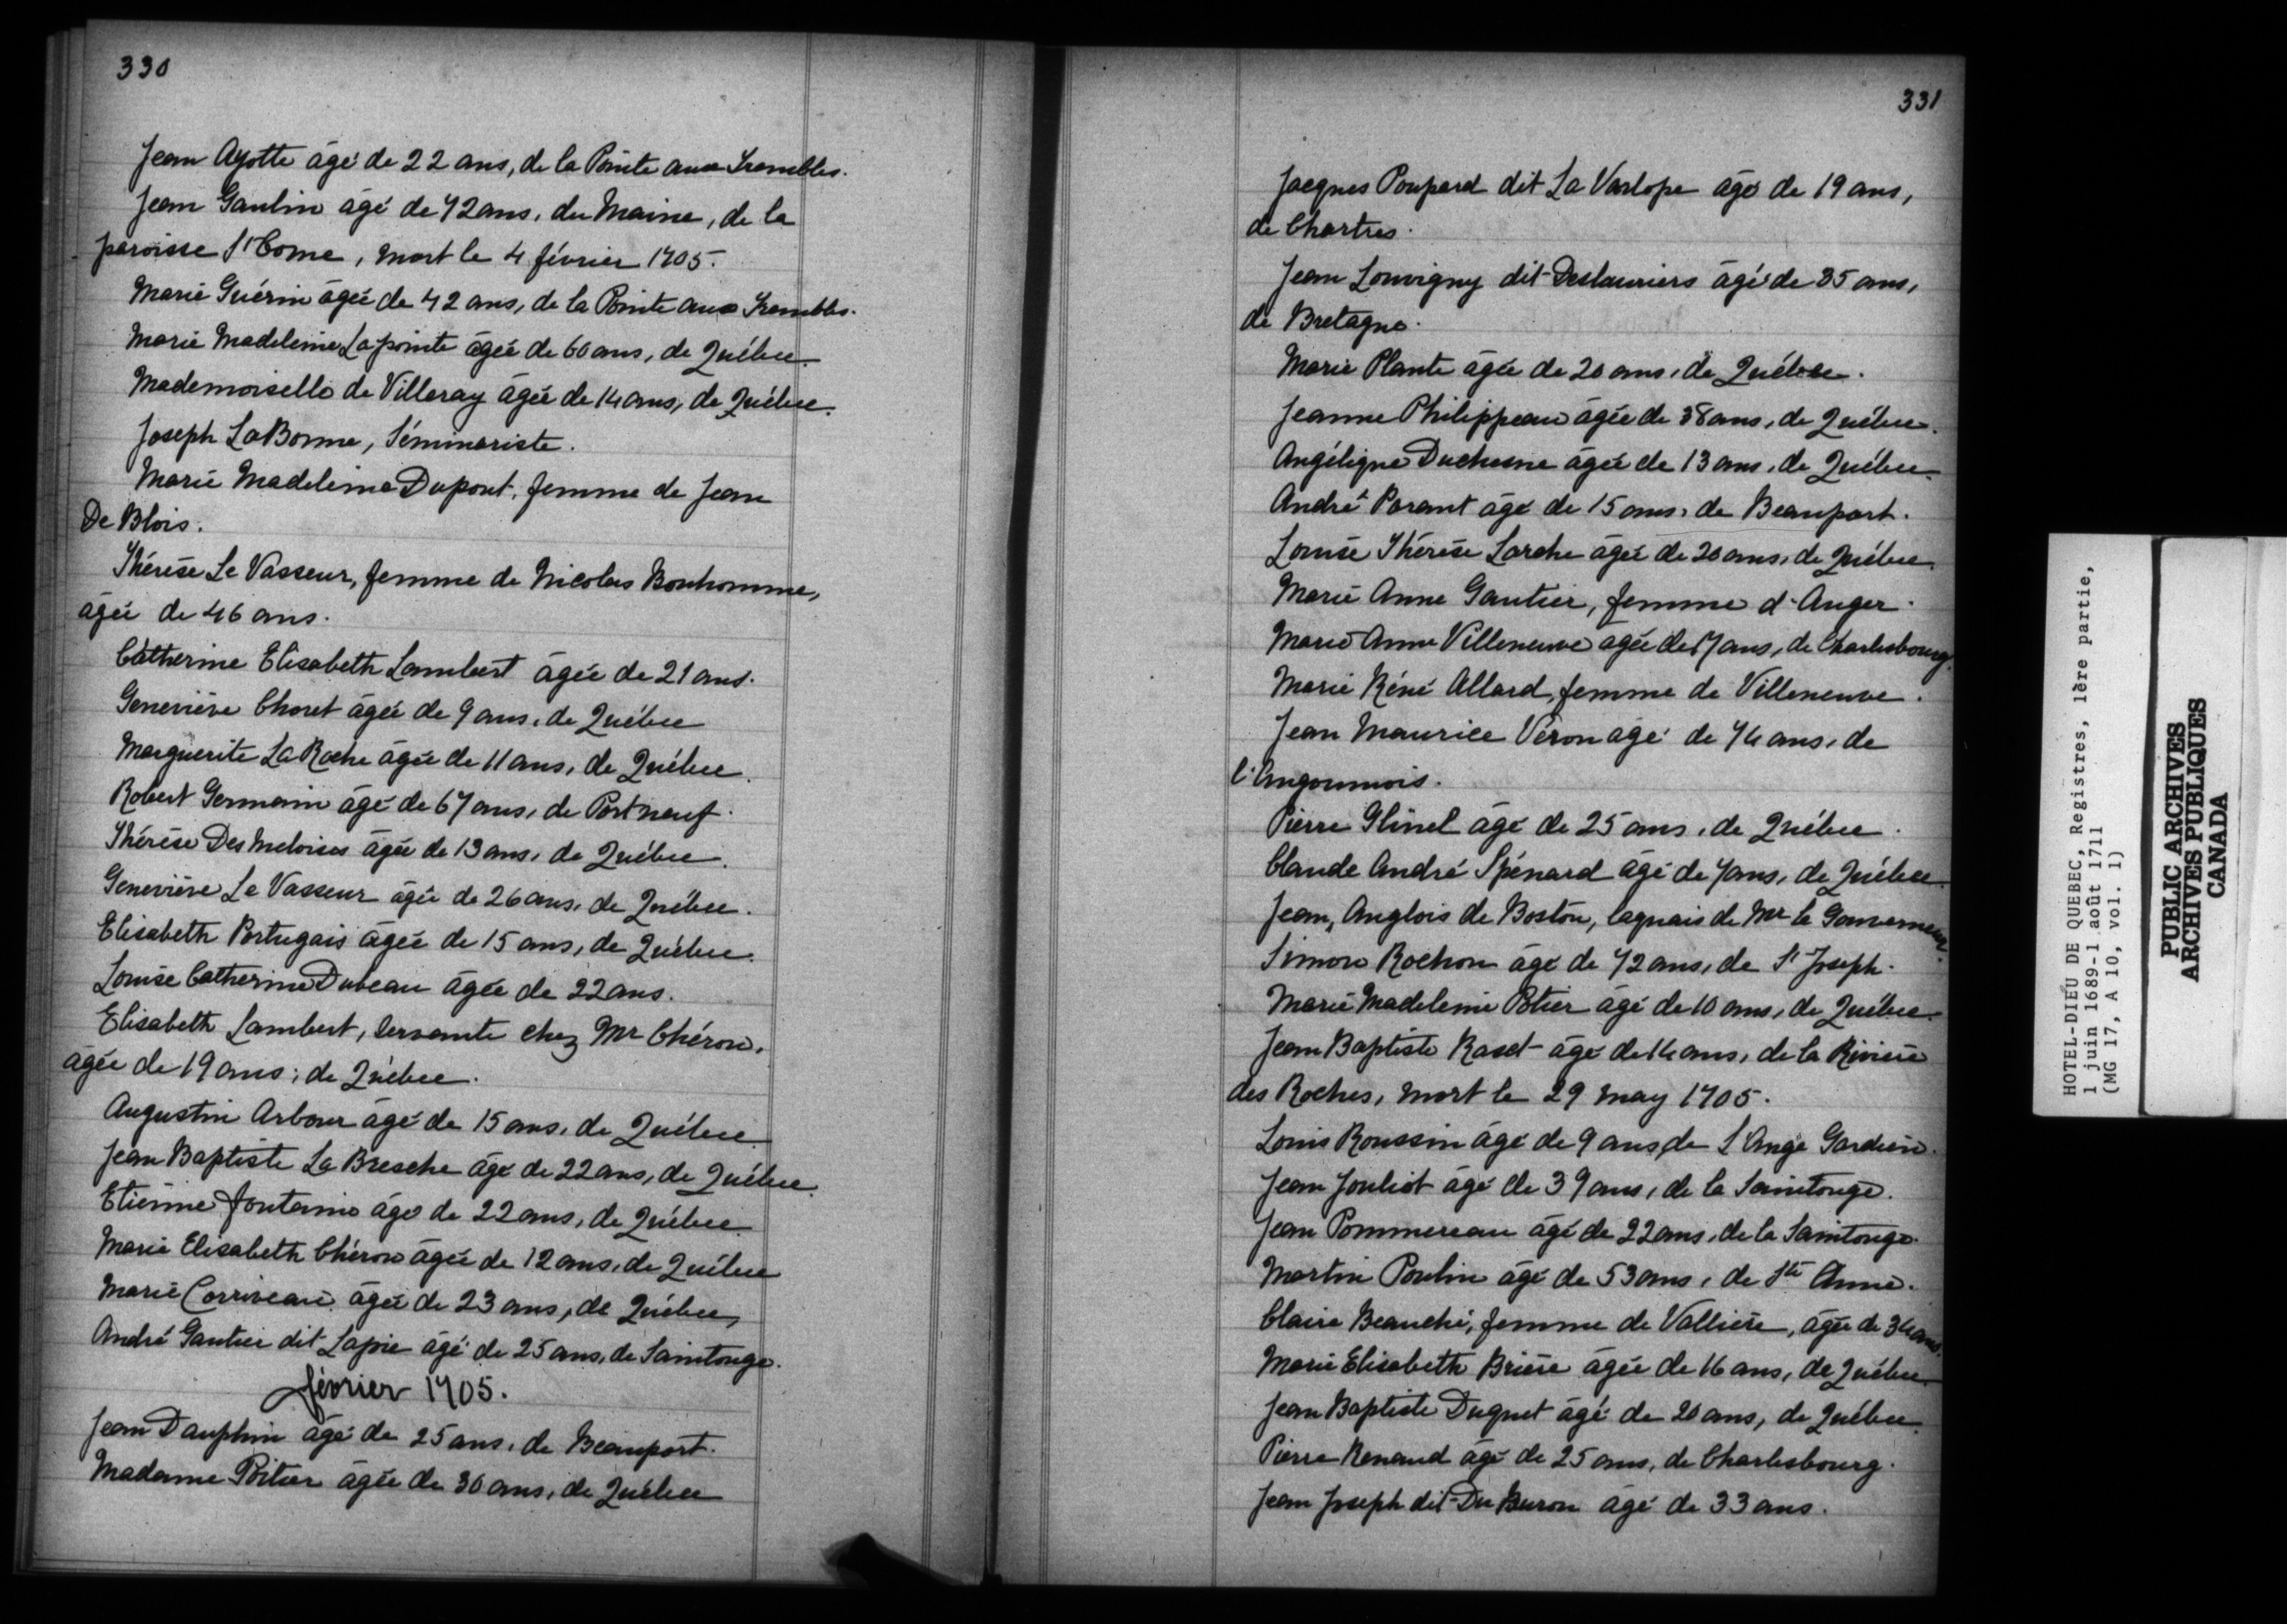 330
Jean Ayotte âgé de 22 ans, de la Pointe aux Trembles.
Jean Gaulin âgé de 72 ans, du Maine, de la
paroisse St Come, mort le 4 février 1705.
Marie Guérin âgée de 42 ans, de la Pointe aux Trembles.
Marie Madeleine Lapointe âgée de 60 ans, de Québec.
Mademoiselle de Villeray âgée de 14 ans, de Québec.
Joseph LaBorme, Séminariste.
Marie Madeleine Dupont, femme de Jean
De Blois.
Thérèse Le Vasseur, femme de Nicolas Bonhomme,
âgée de 46 ans.
Catherine Elisabeth Lambert âgée de 21 ans.
Geneviève Choret âgée de 9 ans, de Québec
Marguerite La Roche âgée de 11 ans, de Québec.
Robert Germain âgé de 67 ans, de Portneuf.
Thérèse Des Meloises âgée de 13 ans, de Québec.
Geneviève Le Vasseur âgée de 26 ans, de Québec.
Elisabeth Portugais âgée de 15 ans, de Québec.
Louise Catherine Dubeau âgée de 22 ans.
Elisabeth Lambert, servante chez Mr Chéron,
âgée de 19 ans, de Québec.
Augustin Arbour âgé de 15 ans, de Québec.
Jean Baptiste La Bresche âgé de 22 ans, de Québec.
Etienne Fontaine âgé de 22 ans, de Québec.
Marie Elisabeth Chéron âgée de 12 ans, de Québec
Marie Corriveau âgée de 23 ans, de Québec,
André Gautier dit Lapie âgé de 25 ans, de Saintonge.
février 1705.
Jean Dauphin âgé de 25 ans, de Beauport.
Madame Poitier âgée de 30 ans, de Québec
331
Jacques Poupard dit La Varlope âgé de 19 ans,
de Chartres.
Jean Louvigny dit Deslauriers âgé de 35 ans,
de Bretagne.
Marie Plante âgée de 20 ans, de Québec.
Jeanne Philippeau âgée de 38 ans, de Québec.
Angélique Duchesne âgée de 13 ans, de Québec.
André Parant âgé de 15 ans, de Beauport.
Louise Thérèse Larche âgée de 20 ans, de Québec.
Marie Anne Gautier, femme d'Auger.
Marie Anne Villeneuve âgée de 17 ans, de Charlesbourg.
Marie Réné Allard, femme de Villeneuve.
Jean Maurice Véron âgé de 74 ans, de
l'Angoumois.
Pierre Glinel âgé de 25 ans, de Québec.
Claude André Spénard âgé de 7 ans, de Québec.
Jean, Anglois de Boston, laquais de Mr le Gouverneur.
Simon Rochon âgé de 72 ans, de St Joseph.
Marie Madeleine Potier âgé de 10 ans, de Québec.
Jean Baptiste Raset âgé de 14 ans, de la Rivière
des Roches, mort le 29 may 1705.
Louis Roussin âgé de 9 ans, de L'Ange Gardien.
Jean Jouliot âgé de 39 ans, de la Saintonge.
Jean Pommereau âgé de 22 ans, de la Saintonge.
Martin Poulin âgé de 53 ans, de Ste Anne.
Claire Beauché, femme de Vallière, âgée de 34 ans.
Marie Elisabeth Brière âgée de 16 ans, de Québec.
Jean Baptiste Duquet âgé de 20 ans, de Québec.
Pierre Renaud âgé de 25 ans, de Charlesbourg.
Jean Joseph dit Du Buron âgé de 33 ans.
HOTEL-DIEU DE QUEBEC, Registres, 1ère partie,
1 juin 1689-1 août 1711
(MG 17, A 10, vol. 1)
PUBLIC ARCHIVES
ARCHIVES PUBLIQUES
CANADA